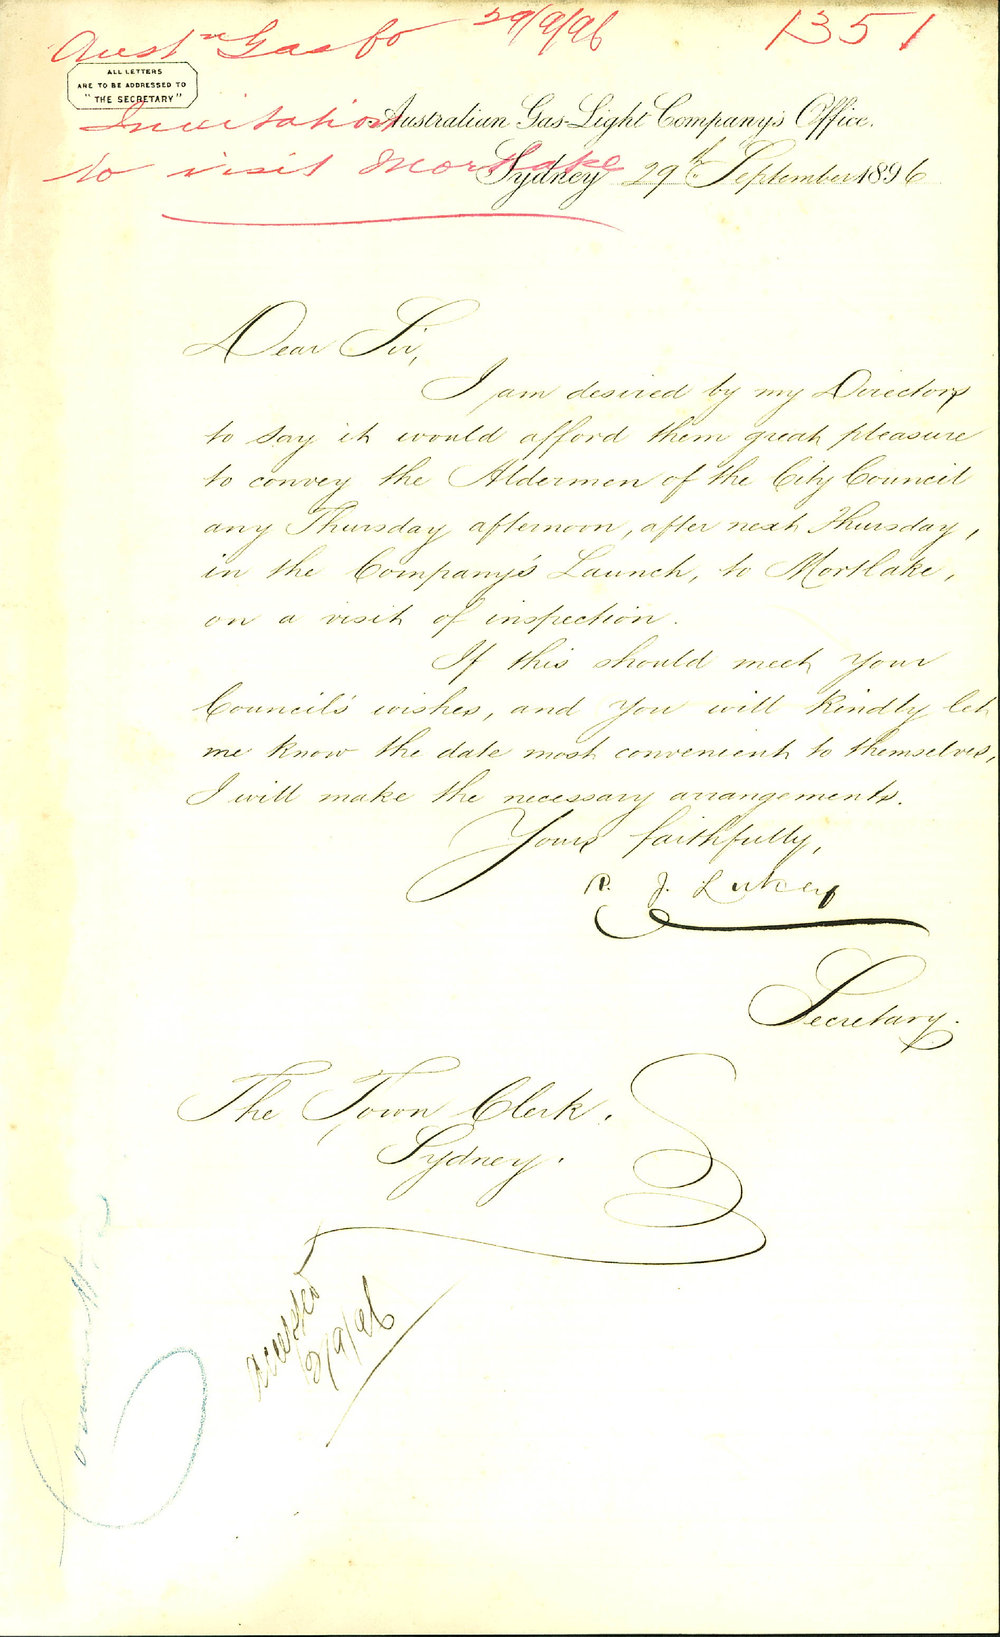 Austn Gas Co 29/9/96 1351
ALL LETTERS
ARE TO BE ADDRESSED TO
"THE SECRETARY"
Invitation
to visit Mortlake
Australian Gas-Light Company's Office.
Sydney 29th September 1896
Dear Sir,
I am desired by my Directors
to say it would afford them great pleasure
to convey the Aldermen of the City Council
any Thursday afternoon, after next Thursday,
in the Company's Launch, to Mortlake,
on a visit of inspection.
If this should meet your
Council's wishes, and you will kindly let
me know the date most convenient to themselves,
I will make the necessary arrangements.
Yours faithfully,
R. J. Lukey
Secretary.
The Town Clerk.
Sydney.
accepted